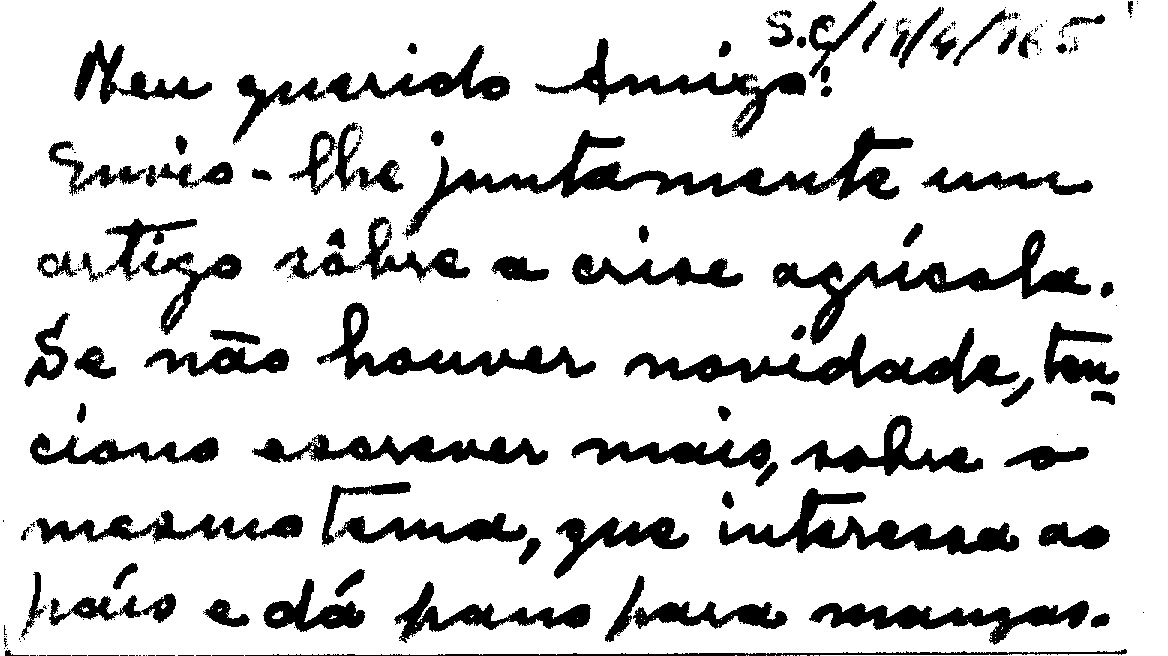 S.C/19/9/965
Meu querido Amigo:
Envio-lhe juntamente um
artigo sôbre a crise agrícola.
Se não houver novidade, ten
ciono escrever mais, sobre o
mesmo tema, que interessa ao
país e dá pano para mangas.